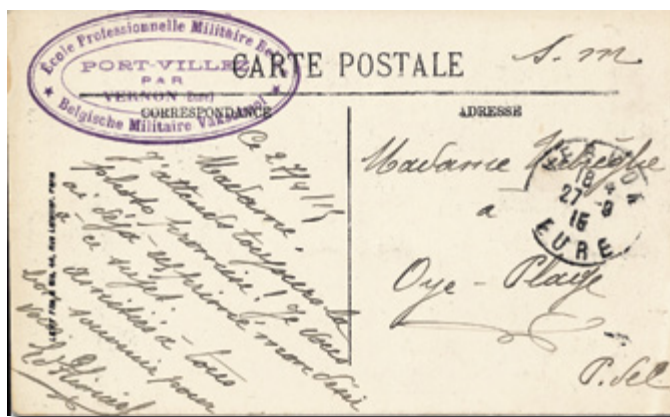 École Professionnelle Militaire
PORT-VILLEZ
PAR
VERNON (Eure)
Belgische Militaire
CARTE POSTALE
S. M
CORRESPONDANCE
ADRESSE
Ce 27/9/15
Madame,
J'attends toujours la
photo promise! Je vous
ai déjà exprimé mon désir
à ce sujet.
amitiés à tous
bon souvenir pour
vous
Madame
18
27-9
15
EURE
a
Oye-Plage
P. de C